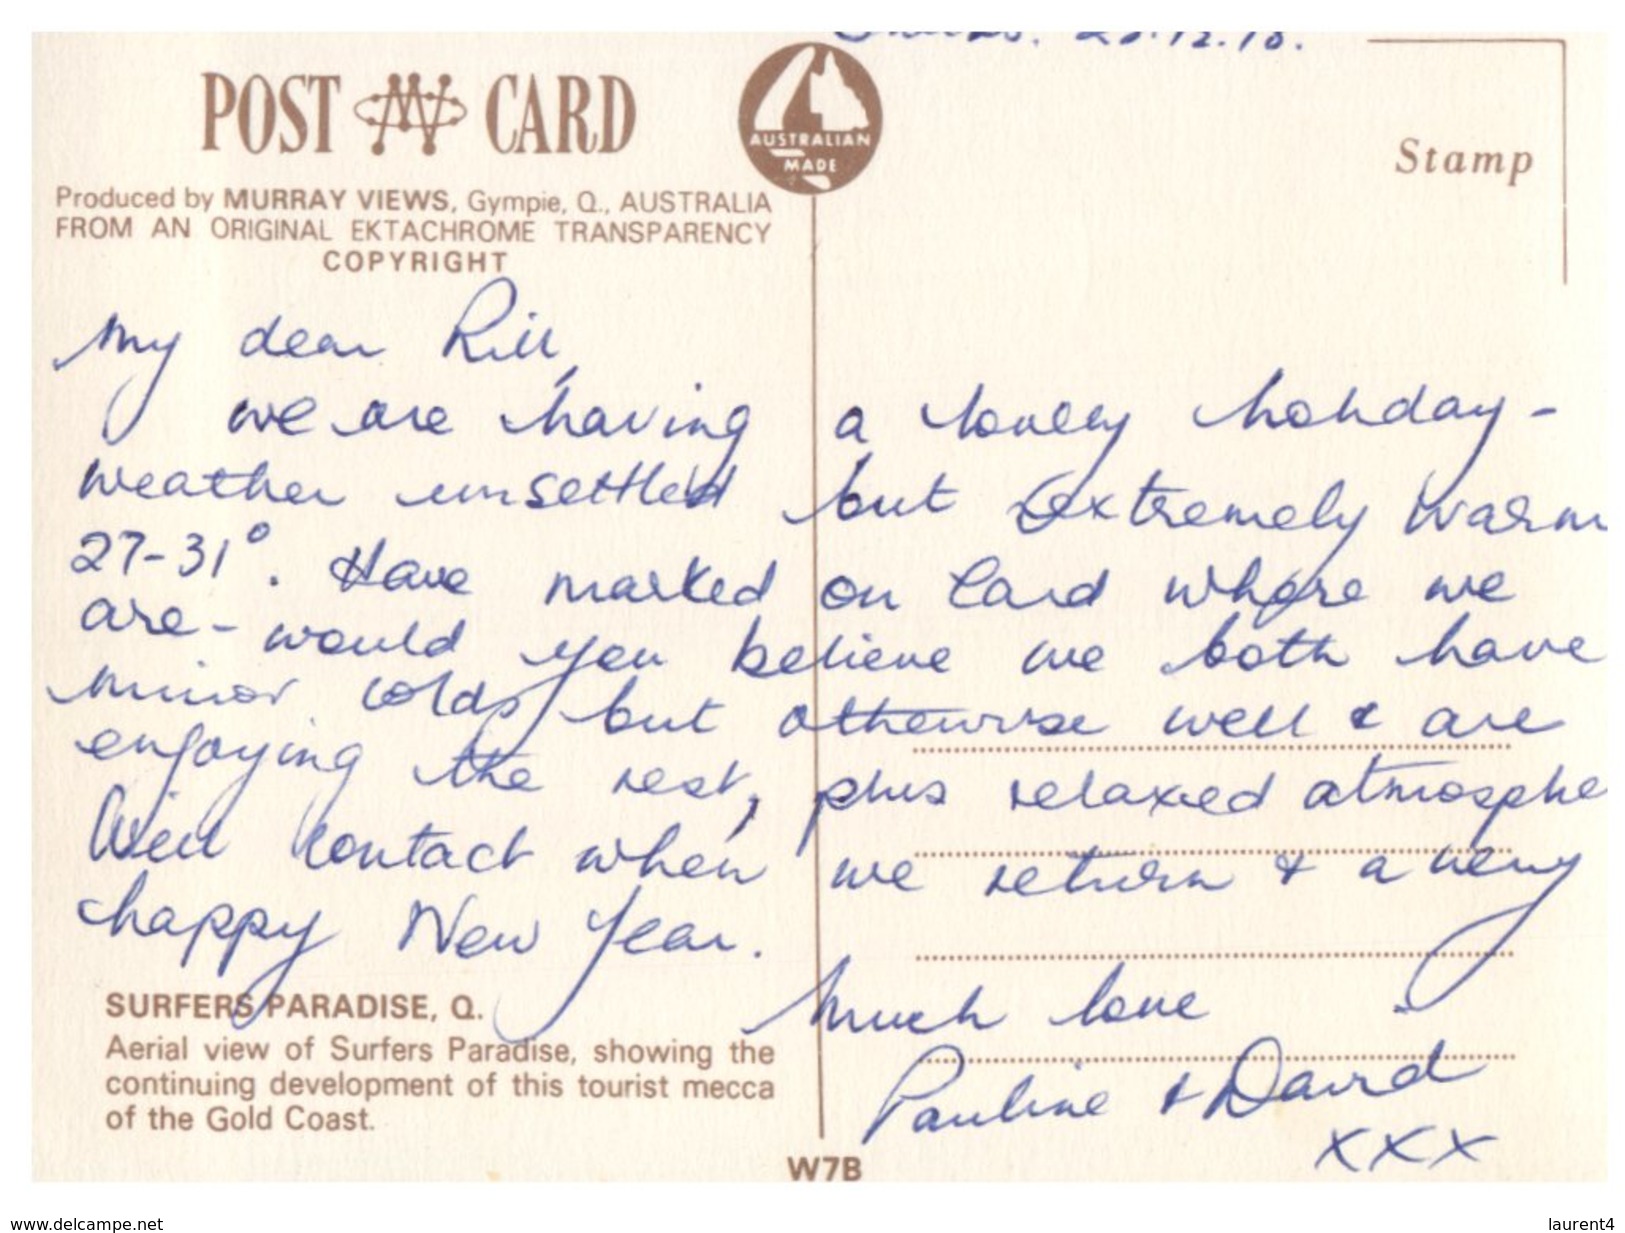 POST CARD
AUSTRALIAN
MADE
Stamp
Produced by MURRAY VIEWS, Gympie, Q., AUSTRALIA
FROM AN ORIGINAL EKTACHROME TRANSPARENCY
COPYRIGHT
My dear
we are having a lovely holiday -
weather unsettled but extremely warm
27-31°. Have marked on Card where we
are - would you believe we both have
minor colds, but otherwise well & are
enjoying the rest, plus relaxed atmosphe
Will contact when we return & a very
happy New Year.
Much love
Pauline & David
xxx
SURFERS PARADISE, Q.
Aerial view of Surfers Paradise, showing the
continuing development of this tourist mecca
of the Gold Coast.
W7B
www.delcampe.net
laurent4